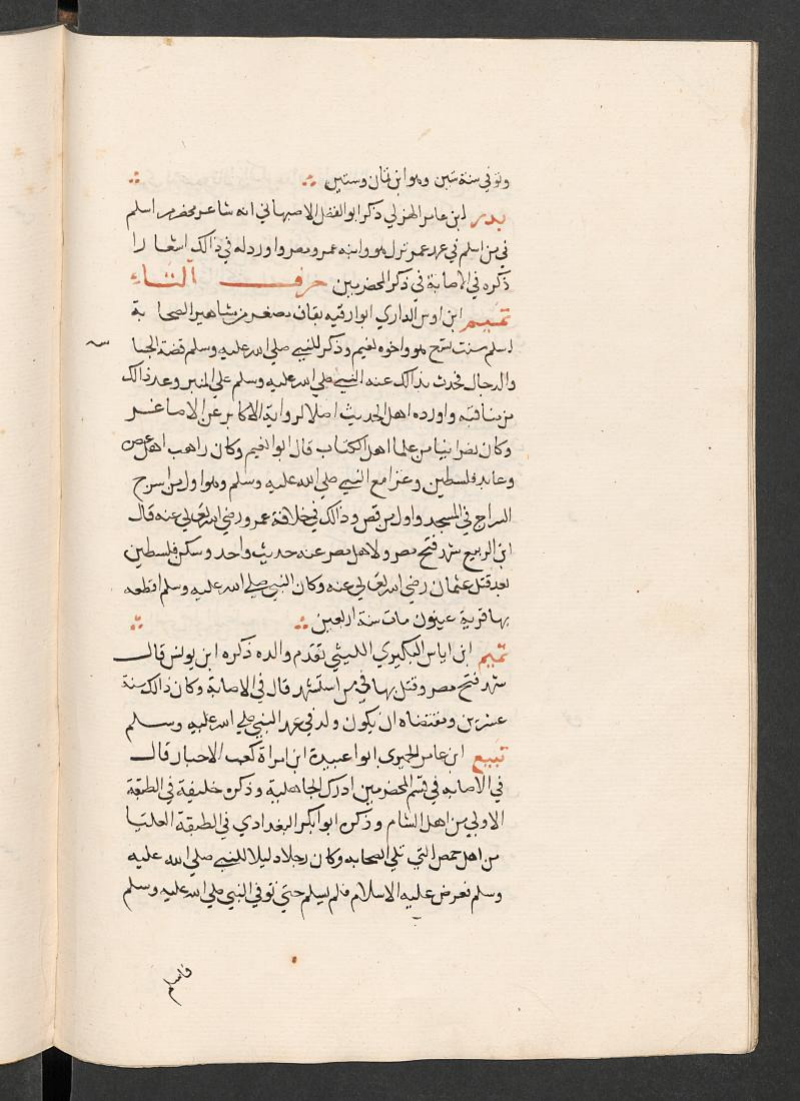 وتوفي سنة ستين وهو ابن ثمان وستين ∴ ∴
بدر ابن عامر الهزلي ذكر ابو الفضل الاصبهاني انه شاعر مخضرم اسلم
في من اسلم في عهد عمر نزل هو وابنه عمر ومصر واورد له في ذالك اشعارا
ذكره في الاصابة في ذكر المخضرمين حرف التاء
تميم ابن اوس الداري ابوا رقيه بقاف مصغر من مشاهير الصحابة
اسلم سنت تسع هو واخوه نعيم وذكر للنبي صلي الله عليه وسلم قصة الجسا
والدجال فحدث بذالك عنه النبي صلي الله عليه وسلم علي المنبر وعد ذالك
من مناقبه واورده اهل الحديث اصلا لرواية الاكابر عن الاصاغر
وكان نصرانيا من علما اهل الكتاب قال ابوا نعيم وكان راهب اهل عصره
وعابد فلسطين وغزا مع النبي صلي الله عليه وسلم وهو اول من اسرج
السراج في المسجد واول من قص وذالك في خلافة عمر رضي الله تعالي عنه قال
ابن الربيع شهد فتح مصر ولاهل مصر عنه حديث واحد وسكن فلسطين
بعد قتل عثمان رضي الله تعالي عنه وكان النبي صلي الله عليه وسلم اقطعه
بها قرية عينون مات سنة اربعين ∴ ∴
تميم ابن اياس البكيري الليثي تقدم والده ذكره ابن يونس قال
شهد فتح مصر وقتل بها في من استشهد قال في الاصابة وكان ذالك سنة
عشرين ومقتضاه ان يكون ولد في عهد النبي صلي الله عليه وسلم
تبيع ابن عامر الحميري ابوا عبيدة ابن امراة كعب الاحبار قال
في الاصابه في قسم المخضرمين ادرك الجاهلية وذكره خليفة في الطبقة
الاولي من اهل الشام وذكره ابوا بكر البغدادي في الطبقة العليا
من اهل حمص التي تلي الصحابه وكان رجلا دليلا للنبي صلي الله عليه
وسلم فعرض عليه الاسلام فلم يسلم حتي توفي النبي صلي الله عليه وسلم
فاسلم